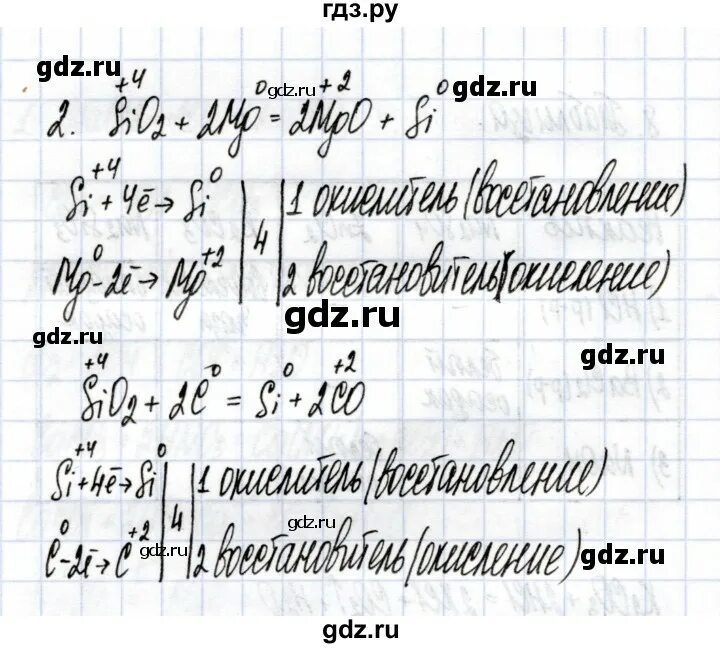 гдз.ру
gdz.ru
+4 0 gdz.ru +2 0 gdz.ru
2. SiO₂ + 2Mg = 2MgO + Si
+4 0
Si + 4ē → Si | 4 | 1 окислитель (восстановление)
0 +2
Mg - 2ē → Mg | | 2 восстановитель (окисление)
gdz.ru
gdz.ru
gdz.ru
+4 0 0 +2
SiO₂ + 2C = Si + 2CO
+4 0
Si + 4ē → Si | 4 | 1 окислитель (восстановление)
gdz.ru
0 +2
C - 2ē → C | | 2 восстановитель (окисление)
gdz.ru
gdz.ru